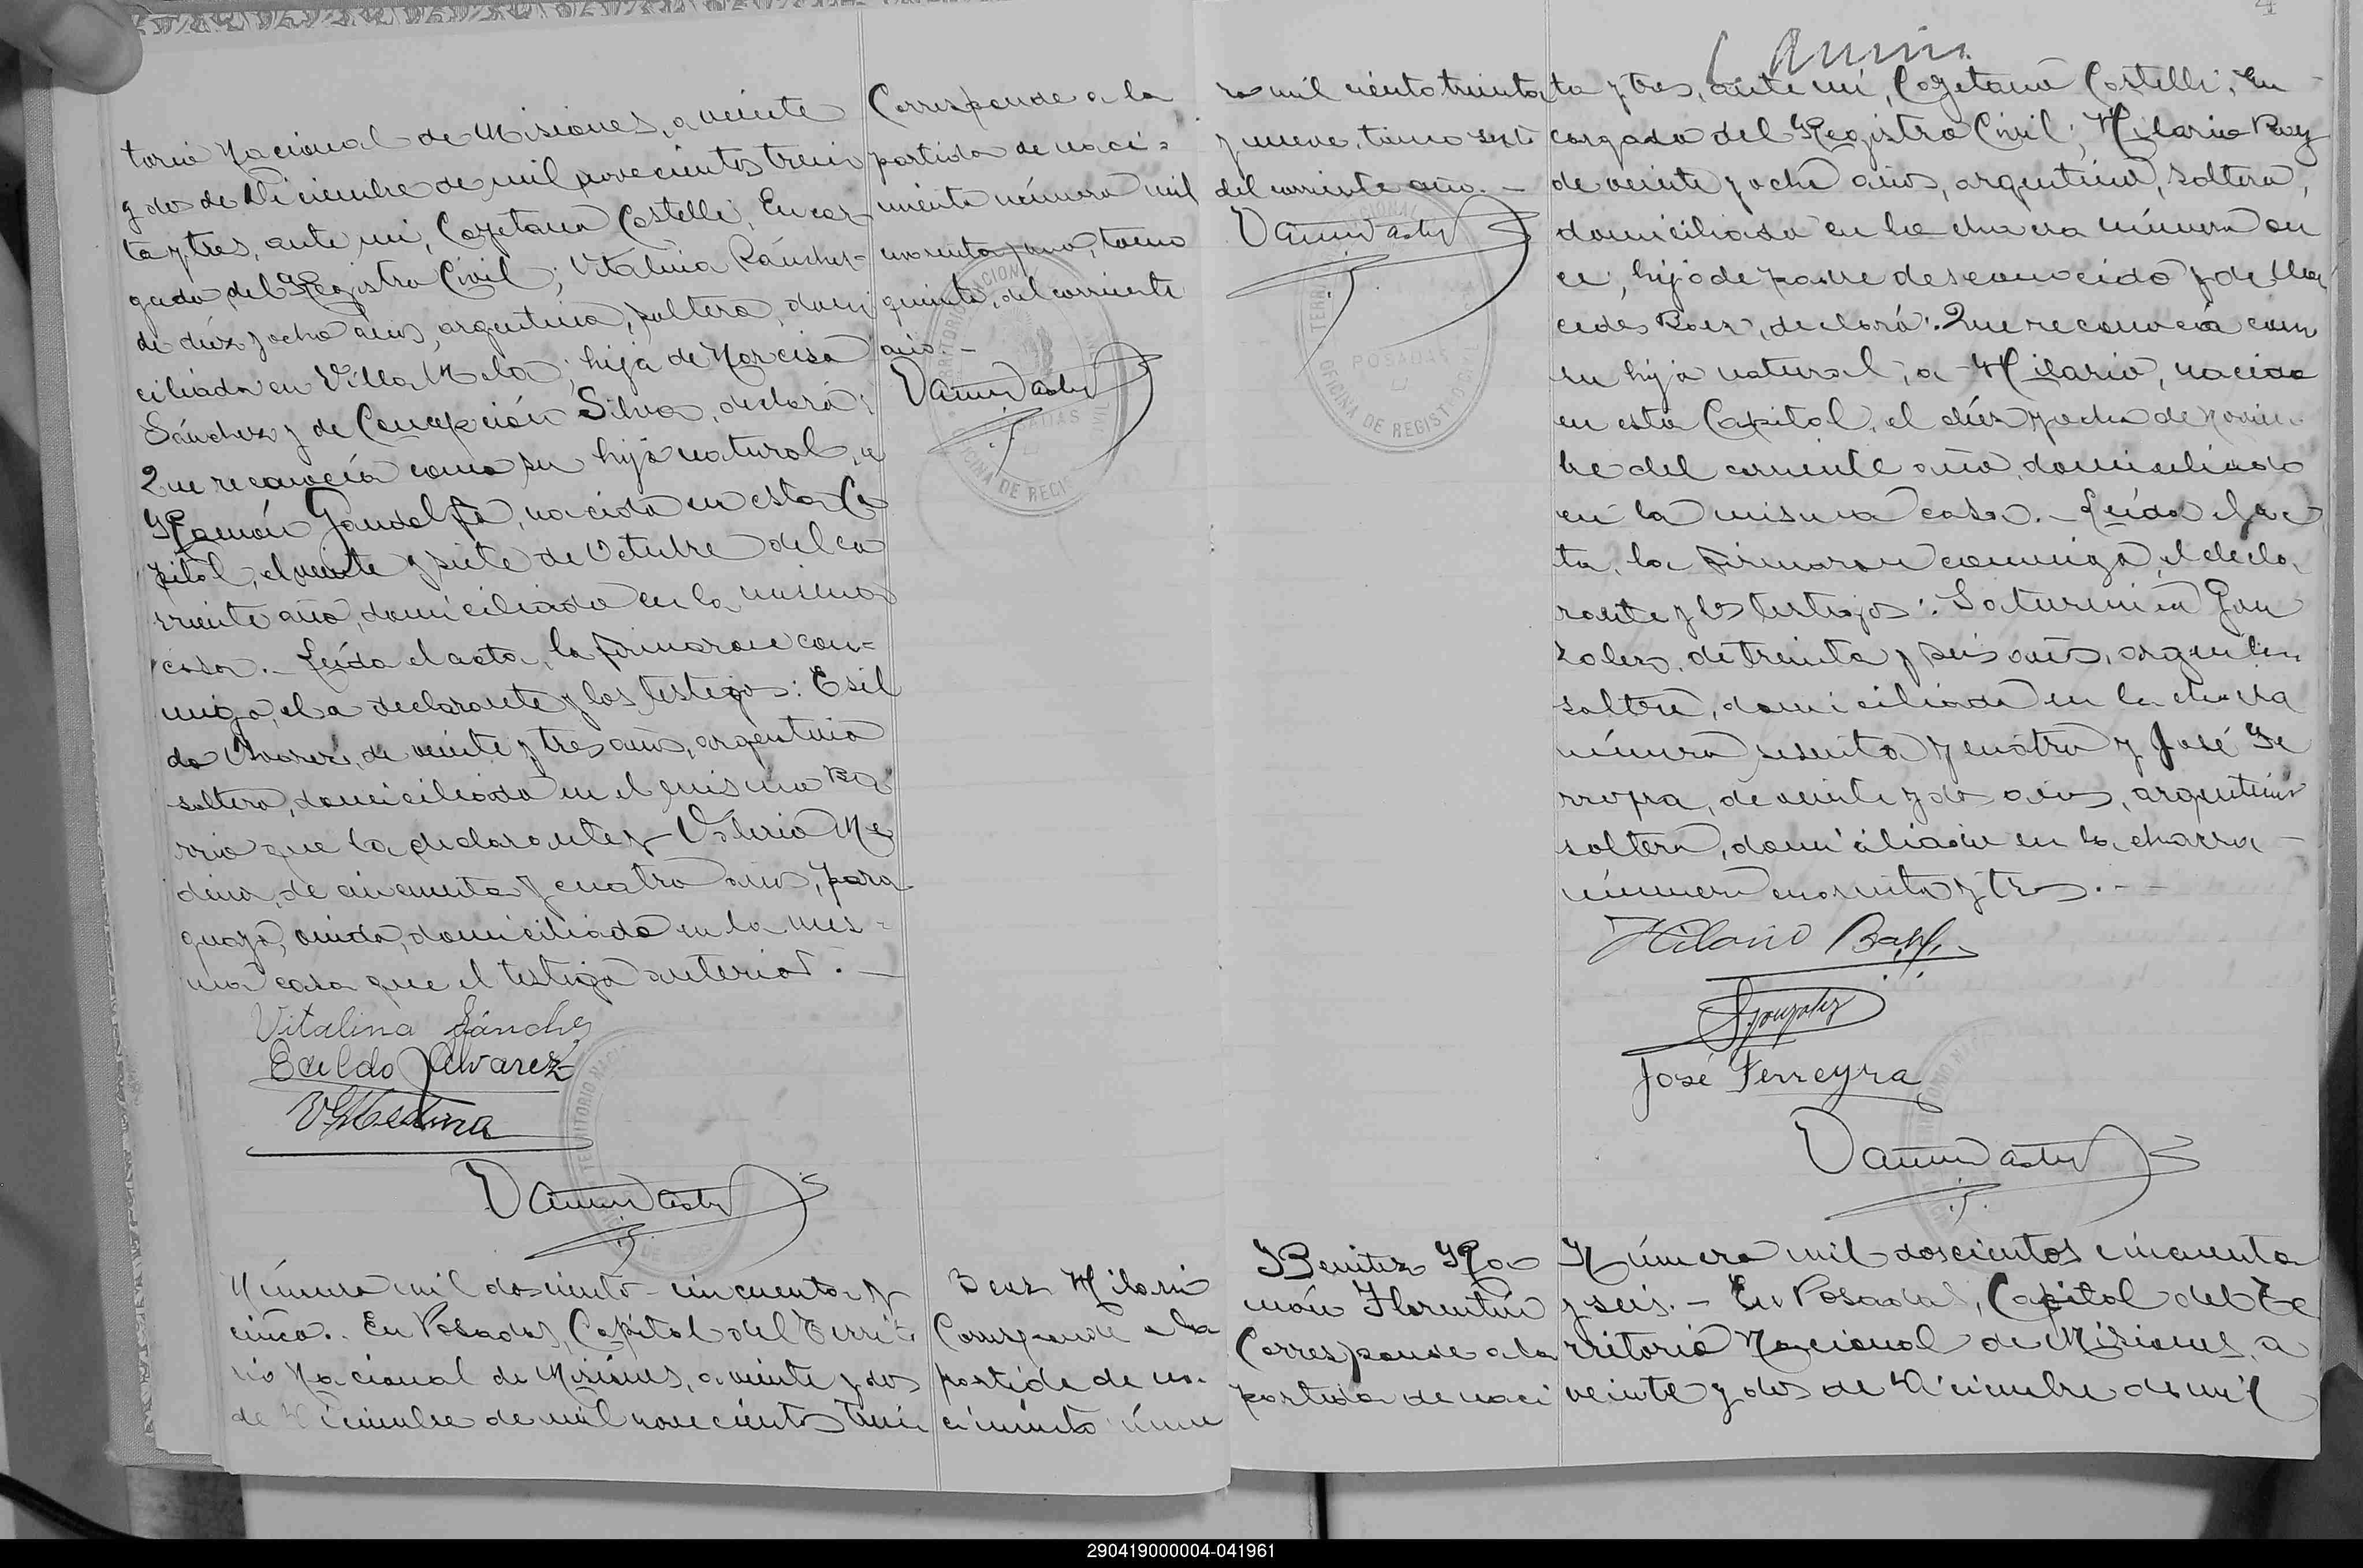 torio Nacional de Misiones, a veinte
y dos de Diciembre de mil novecientos trein
ta y tres, ante mi, Cayetano Castelli, Encar-
gado del Registro Civil; Vitalina Sánchez
de diéz y ocho años, argentina, soltera, domi
ciliada en Villa Mola; hija de Narciso
Sánchez y de Concepción Silva, declaró:
Que reconocía como su hijo natural, a
Ramón Gandolfo, nacido en esta Ca
pital, el veinte y siete de Octubre del co
rriente año, domiciliado en la misma
casa.- Leída el acta, la firmaron con-
migo, la declarante y los testigos: Esil
do Alvarez, de veinte y tres años, argentino
soltero, domiciliado en el mismo Ba
rrio que la declarante y Valerio Me
dina, de cincuenta y cuatro años, para
guayo, viudo, domiciliado en la mis-
ma casa que el testigo anterior.-
Vitalina Sánchez
Esildo Alvarez
V. Medina
Número mil doscientos cincuenta y
cinco.- En Posadas, Capital del Territo
rio Nacional de Misiones, a veinte y dos
de Diciembre de mil novecientos trein
Corresponde a la
partida de naci-
miento número mil
cuarenta y uno, tomo
quinto, del corriente
año.-
TERRITORIO NACIONAL
POSADAS
OFICINA DE REGISTRO CIVIL
Baez Hilario
Corresponde a la
partida de na-
cimiento núme
ro mil ciento treinta
y nueve, tomo sexto
del corriente año.-
TERRITORIO NACIONAL
POSADAS
OFICINA DE REGISTRO CIVIL
Benitez Ra-
món Florentín
Corresponde a la
partida de naci
4
ta y tres, ante mi, Cayetano Castelli, En
cargado del Registro Civil; Hilario Baez
de veinte y ocho años, argentino, soltero,
domiciliado en la chacra número on
ce, hijo de padre desconocido y de Mer
cedes Baez, declaró: Que reconocía como
su hijo natural, a Hilario, nacido
en esta Capital, el diéz y ocho de Noviem
bre del corriente año, domiciliado
en la misma casa.- Leída el ac
ta, la firmaron conmigo, el decla
rante y los testigos: Saturnino Gon
zalez, de treinta y seis años, argentino
soltero, domiciliado en la chacra
número sesenta y cuatro y José Fe
rreyra, de veinte y dos años, argentino
soltero, domiciliado en la chacra
número cuarenta y tres.--
Hilario Baez
S. Gonzalez
José Ferreyra
Número mil doscientos cincuenta
y seis.- En Posadas, Capital del Te
rritorio Nacional de Misiones, a
veinte y dos de Diciembre de mil
290419000004-041961